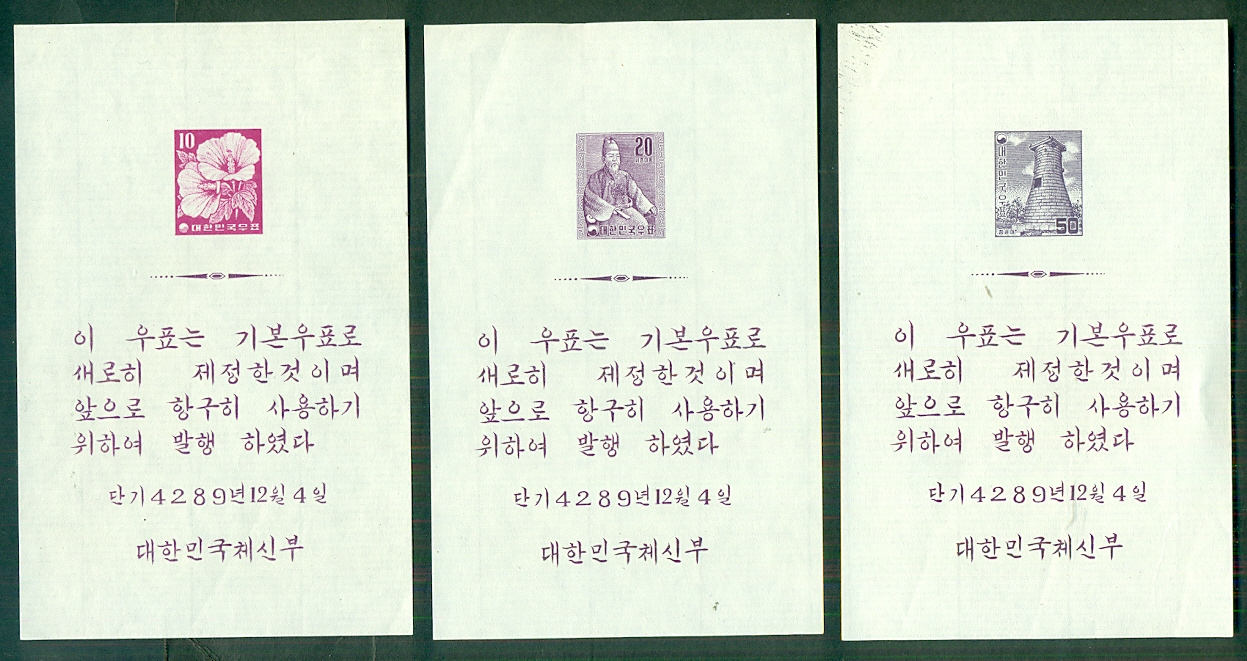 10
대한민국우표
이 우표는 기본우표로
새로히 제정한것이며
앞으로 항구히 사용하기
위하여 발행 하였다
단기4289년12월4일
대한민국체신부
20
대한민국우표
이 우표는 기본우표로
새로히 제정한것이며
앞으로 항구히 사용하기
위하여 발행 하였다
단기4289년12월4일
대한민국체신부
대한민국우표
50
이 우표는 기본우표로
새로히 제정한것이며
앞으로 항구히 사용하기
위하여 발행 하였다
단기4289년12월4일
대한민국체신부